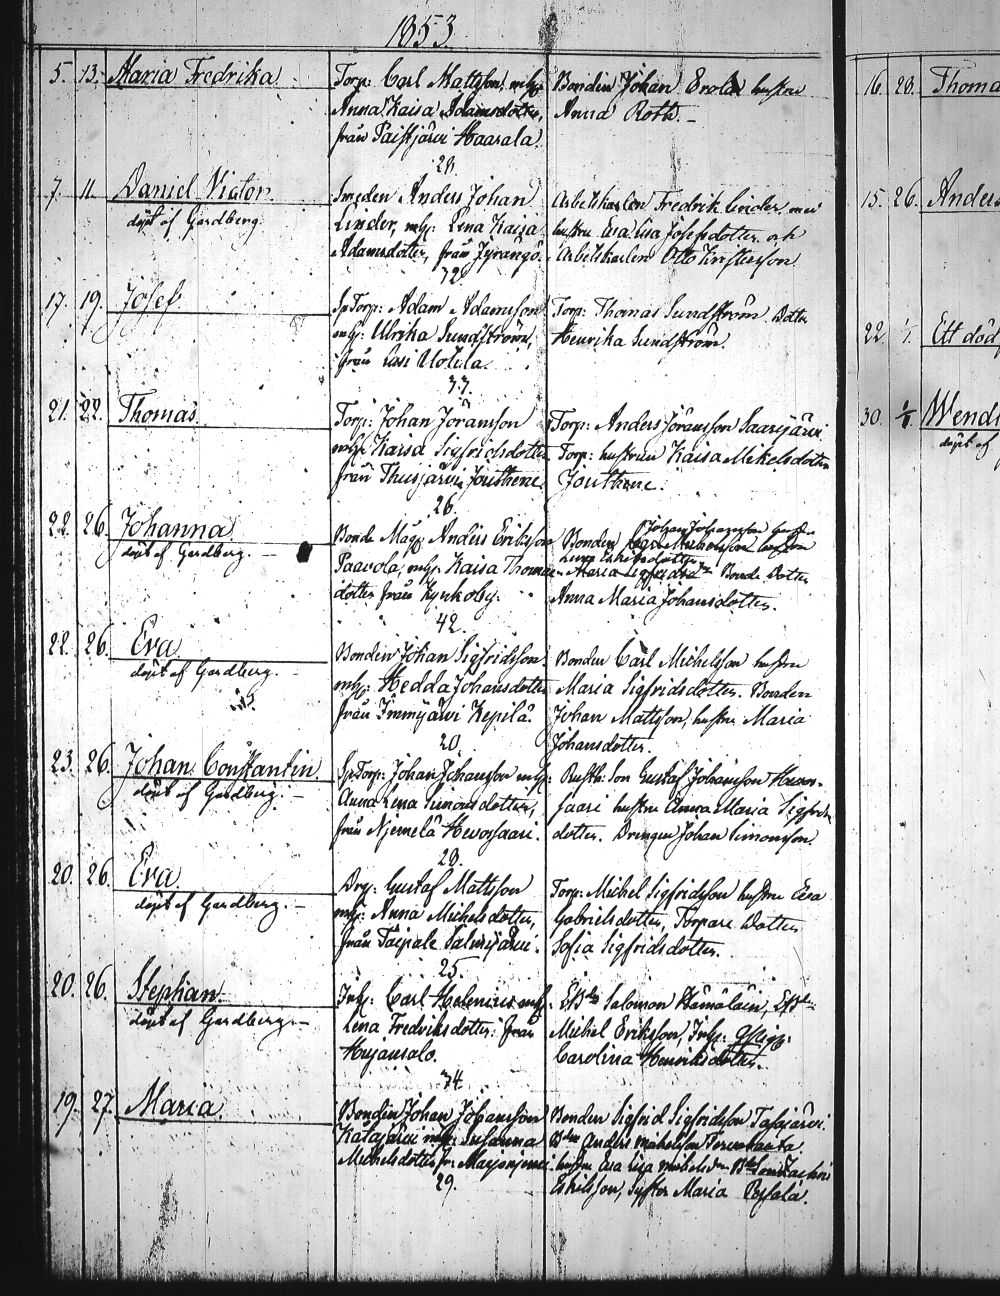 1853
5. 13. Maria Fredrika
Torp: Carl Mattsson, mhj:
Anna Kaisa Adamsdotter,
från Paistjärvi Haarala.
28.
Bonden Johan Erola hustru
Anna Roth. –
7. 11. Daniel Victor.
döpt af Gerdberg.
Smeden Anders Johan
Linder, mhj: Lena Kaisa
Adamsdotter, från Jyrängö.
32.
Arbetskarlen Fredrik Linder, med
hustru Eva Lisa Josefsdotter och
Arbetskarlen Otto
17. 19. Josef.
SpTorp: Adam Adamsson
mhj: Ulrika Sundström,
från Uotila.
33.
Torp: Thomas Sundström. Dotter
Henrika Sundström.
21. 22. Thomas.
Torp: Johan Jöransson
mhj: Kaisa Sigfridsdotter
från Thusjärvi Jouthene.
26.
Torp: Anders Jöransson Saarijärvi
Torp: hustrun Kaisa Mikelsdotter
Jouthene.
22. 26. Johanna.
döpt af Gerdberg. –
Bonde Måg: Anders Eriksson
Paavola, mhj: Kaisa Thomas-
dotter från Kyrkoby.
42.
Johan Johansson hustru
Bonden Carl Michelsson hustru
Lena Eskilsdotter
Maria Sigfridsdr Bonde Dotter
Anna Maria Johansdotter.
22. 26. Eva.
döpt af Gerdberg. –
Bonden Johan Sigfridsson
mhj: Hedda Johansdotter
från Immjärvi Kepilä.
20.
Bonden Carl Michelsson hustru
Maria Sigfridsdotter. Bonden
Johan Mattsson, hustru Maria
Johansdotter.
23. 26. Johan Constantin.
döpt af Gerdberg. –
SpTorp: Johan Johansson mhj:
Anna Lena Simonsdotter,
från Njemelä Hevossaari.
28.
Rusth: Son Gustaf Johansson Hevos-
saari hustru Anna Maria Sigfrids
dotter. Drengen Johan Simonsson.
20. 26. Eva.
döpt af Gerdberg. –
Drg: Gustaf Mattsson
mhj: Anna Michelsdotter,
från Taipale Salmijärvi.
25.
Torp: Michel Sigfridsson hustru Eva
Gabrielsdotter, Torpare Dotter
Sofia Sigfridsdotter.
20. 26. Stephan.
döpt af Gerdberg. –
Inh: Carl Helenius mhj:
Lena Fredriksdotter: från
Hujansalo.
34.
Salomon Hämäläin,
Michel Eriksson, Inh:
Carolina Henriksdotter.
19. 27. Maria.
Bonden Johan Johansson
Katajärvi mhj: Susanna
Michelsdotter fr:
29.
Bonden Sigfrid Sigfridsson
Anders Michelsson
hustru Eva Lisa
Eskilsson, Syster Maria
16. 23. Thoma
15. 26. Anders
22. 1/1. Ett död
30. Wendl
döpt af